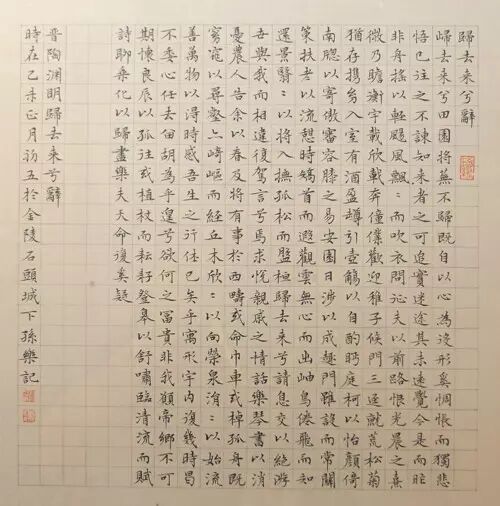 歸去來兮辭
歸去來兮田園將蕪不歸既自以心為役形奚惆悵而獨悲
悟已往之不諫知來者之可追實迷途其未遠覺今是而昨
非舟搖以輕颺風飄〻而吹衣問征夫以前路恨光晨之熹
微乃瞻衡宇載欣載奔僮僕歡迎稚子候門三逕就荒松菊
猶存攜幼入室有酒盈罇引壺觴以自酌眄庭柯以怡顏倚
南牕以寄傲審容膝之易安園日涉以成趣門雖設而常關
策扶老以流憩時矯首而遐觀雲無心而出岫鳥倦飛而知
還景翳〻以將入撫孤松而盤桓歸去来兮請息交以絕游
吾與我而相違復駕言兮焉求悅親戚之情話樂琴書以消
憂農人告余以春及將有事於西疇或命巾車或棹孤舟既
窈窕以尋壑亦崎嶇而經丘木欣〻以向榮泉涓〻以始流
善萬物以得時感吾生之行休已矣乎寓形宇内復幾時曷
不委心任去留胡為乎遑兮欲何之富貴非我願帝鄉不可
期懷良辰以孤往或植杖而耘耔登皋以舒嘯臨清流而賦
詩聊乘化以歸盡樂夫天命復奚疑
晉陶淵明歸去來兮辭
時在乙未正月初五於金陵石頭城下孫樂記